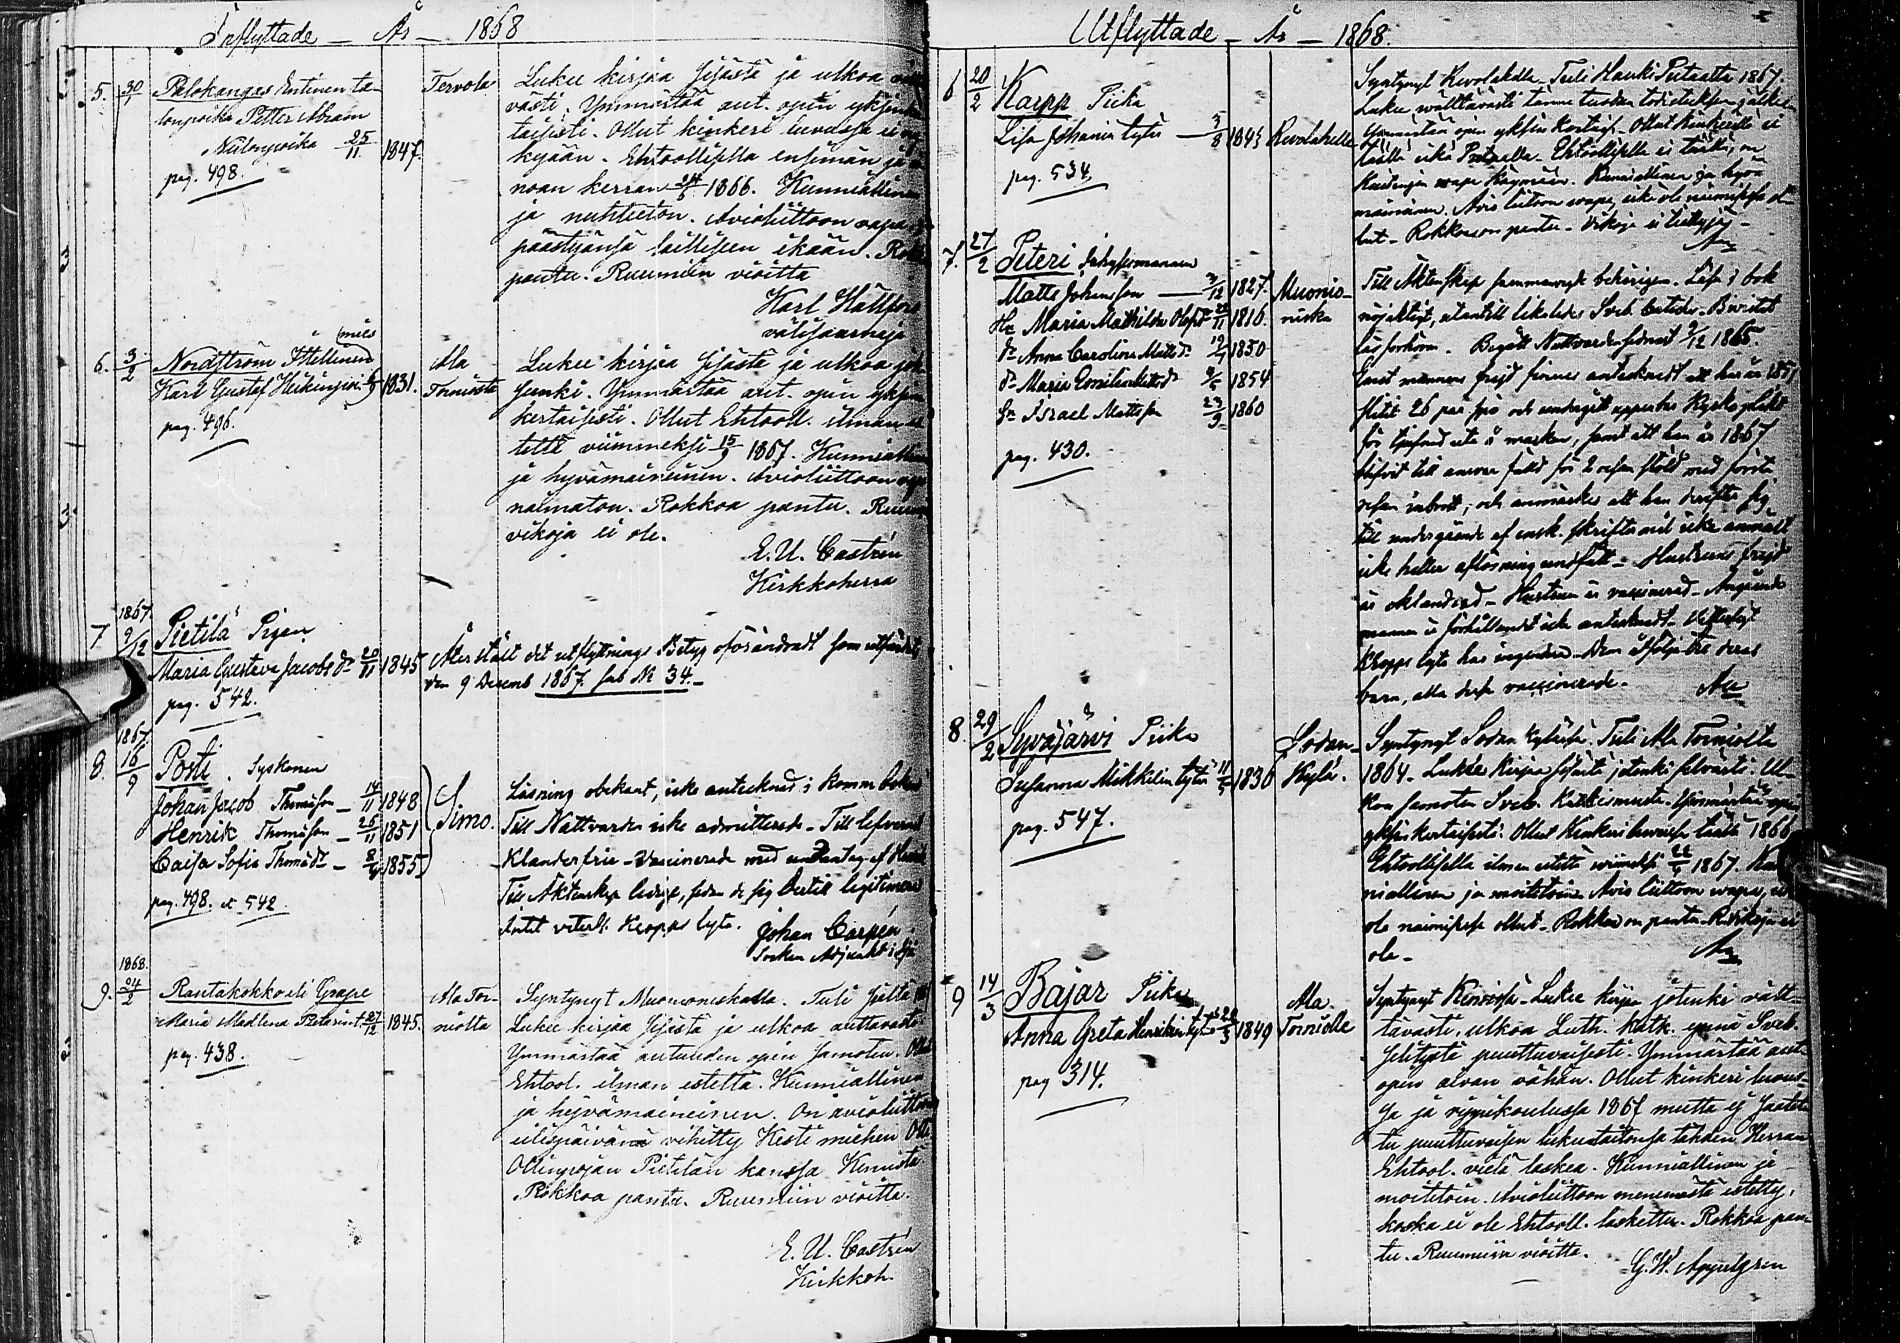 Inflyttade — År — 1868
5. 30/1 Palokangas Entinen ta-
lonpoika Petter Abram
Niilonpoika 25/11 1847.
pag. 498.
Tervola
Lukee kirjaa sisästä ja ulkoa
västi. Ymmärtää aut. opin yksin
taisesti. Ollut kinkeri luvussa
kyään. Ehtoollisella ensimän
noan kerran 24/6 1866. Kunniallinen
ja nuhteeton. Avioliittoon vapa
päästyänsä laillisen ikään. Rok
pantu. Ruumiin vioitta
Karl Hällfors
välisaarnaja
6. 3/2 Nordström Itsellinen mies
Karl Gustaf Heikinpoi. 1831.
pag. 496.
Ala
Torniosta
Lukee kirjaa sisästä ja ulkoa
Ymmärtää aut. opin yksin
kertaisesti. Ollut Ehtooll. ilman
tettä viimmeksi 15/9 1867. Kunniallinen
ja hyvämaineinen. Avioliittoon
naimaton. Rokkoa pantu. Ruum
vikoja ei ole.
E. U. Castrén
Kirkkoherra
7 1867. 9/12 Pietilä Pigan
Maria Gustava Jacobsdr 20/11 1845
pag. 542.
Återstält det utflyttnings Betyg oförändradt som utfärdats
den 9 Decemb 1867. sub N 34.
8. 1867. 16/9 Posti. Syskonen
Johan Jacob Thomasson — 14/11 1848
Henrik Thomasson — 26/11 1851
Caisa Sofia Thomasdr — 1855
pag. 498. et 542.
Simo.
Läsning obekant, icke antecknad i Komm boken
Till Nattvarden icke admitterade — Till lefverne
Klanderfrie — Vaccinerade med undantag af Henrik
Till Äktenskap ledige, sedan de sig dertill legitimera
Intet veterl. Kropps lyte.
Johan Carpén
Socken Adjunkt i
9. 1868. 24/2 Rantakokko eli Grape
Maria Madlena Peterint. 27/12 1845.
pag. 438.
Ala Tor-
niolta
Syntynyt Muonioniskalla. Tuli sieltä
Lukee kirjaa sisästä ja ulkoa auttavasti
Ymmärtää autuuden opin samoten. Ollut
Ehtool. ilman estettä. Kunniallinen
ja hyvämaineinen. On avioliittoon
eilispäivänä vihitty Kesti miehen Olli
Ollinpojan Pietilän kanssa Kemistä
Rokkoa pantu. Ruumiin vioitta.
E. U. Castrén
Kirkkoh.
Utflyttade — År — 1868.
6 20/2 Karpp Piika
Liisa Johanin tytär — 3/8 1843
pag. 534.
Revolahelle
Syntynyt Revolahdella. Tuli Hauki Putaalta 1867.
Lukee välttävästi tänne tuodun todistuksen jälkeen
Ymmärtää opin yksin kertais. Ollut kinkerillä ei
täällä eikä Putaalla. Ehtoollisella ei täällä, on
käymään. Kunniallinen ja hyvä
maineinen. Avio liitoon vapa, eikä ole naimisessa ol-
lut. Rokko on pantu. Vikoja ei tiedetty.
7. 27/2 Peteri Inhysesmannen
Matts Johansson — 2/12 1827.
Hu Maria Mathilda Olofsdr 28/11 1816.
dr Anna Carolina Mattsdr 1850
dr Maria Emilia Mattsdr 9/5 1854
Sn Israel Mattsson 23/9 1860
pag. 430.
Muonio-
niska
Till Äktenskap sammanvigde behörigen. Läser i bok
nöjaktigt, utantill likaledes Sveb. Cateches. Bevistat
läsförhören. Begått Nattvarden sednast 3/12 1865.
mannens frejd finnes antecknadt att han år 1857
slitit 26 par spö och undergått uppenbar Kyrkoplikt
för tjufnad ute å marken, samt att han år 1867
blifvit till ansvar fälld för 2 resan stöld med första
resan inbrott, och anmärkes att han derefter sig
till undergående af ensk. skrifte ord icke anmält
icke heller aflösning undfått — Hustruns frejd
är oklandrad — Hustrun är vaccinerad — Angående
mannen är förhållandet icke antecknadt — Veterligt
Kropps lyte har ingendera. Dem åtfölja tre deras
barn, alla dessa vaccinerade.
8. 29/2 Syväjärvi Piika
Susanna Mikkelin tytär 1836
pag. 547.
Sodan-
Kylä.
Syntynyt Sodankylässä. Tuli Ala Torniolta
1864. Lukee kirjaa sisästä jotenki selvästi. Ul-
koa samoten Sveb. Katkismusta. Ymmärtää opin
yksin kertaisesti. Ollut Kinkeri luvussa täällä 1866
Ehtoollisella ilman estettä viimeksi 1867. Kun
niallinen ja moitetoin. Avio liittoon vapa, eikä
ole naimisessa ollut. Rokko on pantu. R.vikoja ei
ole.
9 14/3 Bajar Piika
Anna Greta Henrikin tytär 1849
pag 314.
Ala
Torniolle
Syntynyt Kemissä. Lukee kirjaa jotenki vält-
tävästi, ulkoa Luth. Katk. ynnä Sveb.
selitystä puuttuvaisesti. Ymmärtää aut
opin aivan vähän. Ollut kinkeri luvus-
sa ja rippikoulussa 1867 mutta ej saatet
tu puuttuvaisen lukutaitonsa tähden Herran
Ehtool. vielä laskea. Kunniallinen ja
moitetoin. Avioliittoon menemästä estetty,
koska ei ole Ehtooll. laskettu. Rokkoa pan-
tu. Ruumiin vioitta.
G. W. Appelgren